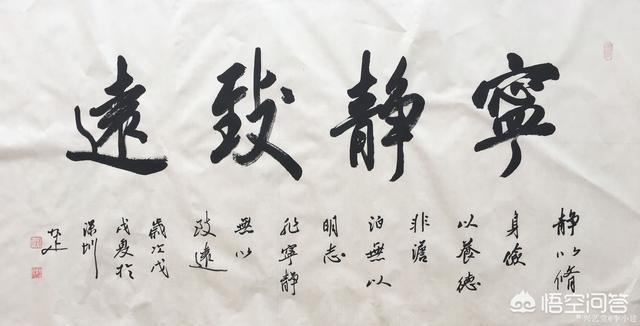 寧靜致遠
静以脩
身儉
以養德
非澹
泊無以
明志
非寧静
無以
致遠
歲次戊
戌夏於
深圳
悟空问答